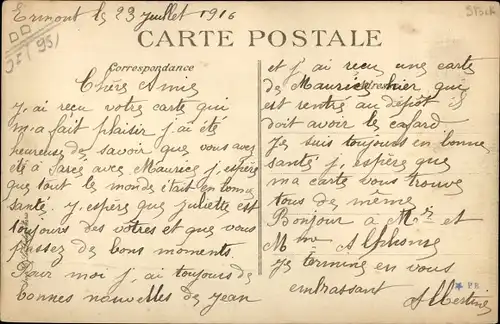 Ermont le 23 juillet 1916
Stock
CARTE POSTALE
Correspondance
Chers Amis
y, ai recu votre carte qui
m,a fait plaisir j,ai été
heureuse de savoir que vous avez
été a avec Maurice j, espère
que tout le monde était en bonne
santé. y, espère que juliette est
toujours des votres et que vous
passez de bons moments.
Pour moi j, ai toujours de
bonnes nouvelles de jean
et j ai recu une carte
de Maurice hier qui
est rentré au dépôt il
doit avoir le cafard
je suis toujours en bonne
santé j, espère que
ma carte vous trouve
tous de même
Bonjour a Mr et
Mme Alphonse
je termine en vous
embrassant Albertine
P.R.